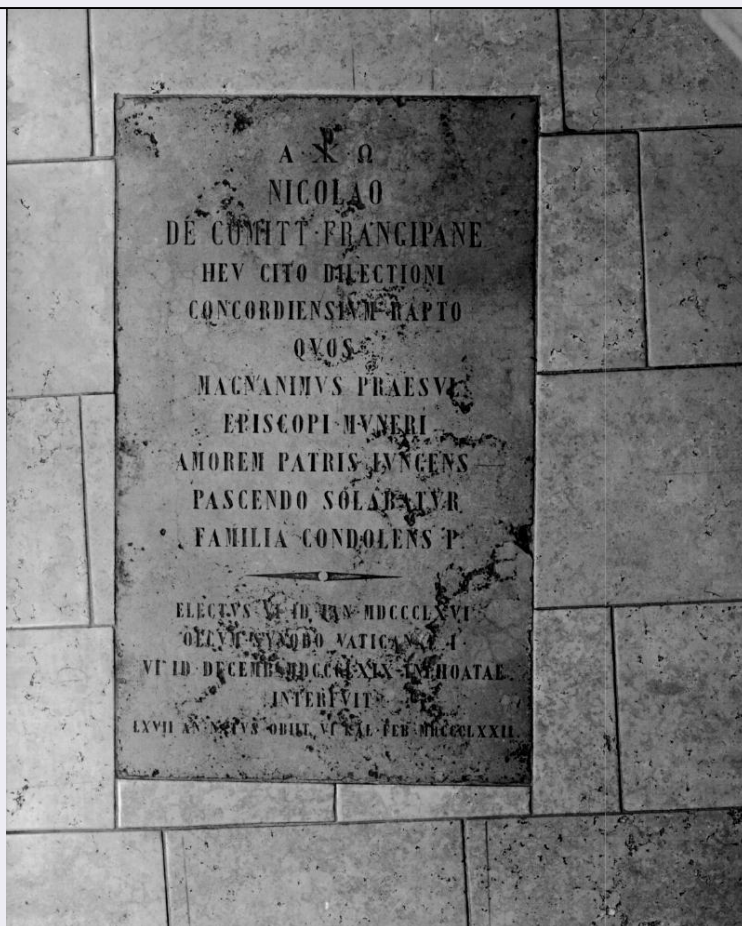 Α ☧ Ω
NICOLAO
DE COMITT·FRANGIPANE
HEV CITO DILECTIONI
CONCORDIENSIVM RAPTO
QVOS
MAGNANIMVS PRAESVL
EPISCOPI MVNERI
AMOREM PATRIS IVNGENS
PASCENDO SOLABATVR
FAMILIA CONDOLENS P.
ELECTVS VI ID IAN MDCCCLXVI
VI ID DECEMB MDCCCLXIX INCHOATAE
INTERFVIT
LXVII AN NATVS OBIIT VI KAL FEB MDCCCLXXII